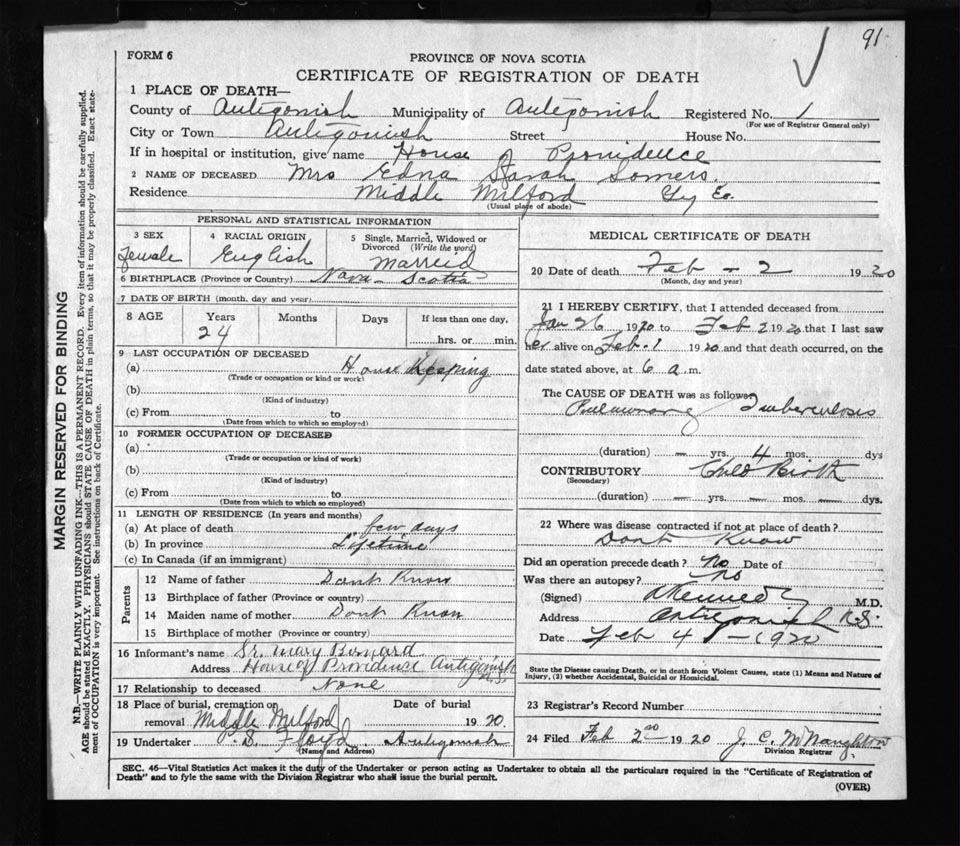 91
FORM 6
PROVINCE OF NOVA SCOTIA
CERTIFICATE OF REGISTRATION OF DEATH
1 PLACE OF DEATH—
County of Antigonish Municipality of Antigonish Registered No. 1
(For use of Registrar General only)
City or Town Antigonish Street House No.
If in hospital or institution, give name House of Providence
2 NAME OF DECEASED Mrs Edna Sarah Somers.
Residence Middle Milford Gy Co.
(Usual place of abode)
PERSONAL AND STATISTICAL INFORMATION
3 SEX 4 RACIAL ORIGIN 5 Single, Married, Widowed or
Divorced (Write the word)
Female English Married
6 BIRTHPLACE (Province or Country) Nova Scotia
7 DATE OF BIRTH (month, day and year)
8 AGE Years Months Days If less than one day,
24 hrs. or min.
9 LAST OCCUPATION OF DECEASED
(a) House Keeping
(Trade or occupation or kind or work)
(b)
(Kind of industry)
(c) From to
(Date from which to which so employed)
10 FORMER OCCUPATION OF DECEASED
(a)
(Trade or occupation or kind of work)
(b)
(Kind of industry)
(c) From to
(Date from which to which so employed)
11 LENGTH OF RESIDENCE (In years and months)
(a) At place of death few days
(b) In province Lifetime
(c) In Canada (if an immigrant)
Parents
12 Name of father Dont Know
13 Birthplace of father (Province or country)
14 Maiden name of mother Dont Know
15 Birthplace of mother (Province or country)
16 Informant's name Sr. Mary Bernard
Address House of Providence Antigonish N.S.
17 Relationship to deceased None
18 Place of burial, cremation or Date of burial
removal Middle Milford 1920.
19 Undertaker S. Floyd Antigonish
(Name and Address)
MEDICAL CERTIFICATE OF DEATH
20 Date of death Feb - 2 1920
(Month, day and year)
21 I HEREBY CERTIFY, that I attended deceased from
Jan 26 1920 to Feb 2 1920 that I last saw
her alive on Feb. 1 1920 and that death occurred, on the
date stated above, at 6 a.m.
The CAUSE OF DEATH was as follows
Pulmonary Tuberculosis
(duration) — yrs. 4 mos. dys
CONTRIBUTORY Child Birth
(Secondary)
(duration) — yrs. — mos. — dys.
22 Where was disease contracted if not at place of death?
Dont Know
Did an operation precede death? No Date of
Was there an autopsy? No
(Signed) Kennedy M.D.
Address Antigonish N.S.
Date Feb 4 - 1920
State the Disease causing Death, or in death from Violent Causes, state (1) Means and Nature of
Injury, (2) whether Accidental, Suicidal or Homicidal.
23 Registrar's Record Number
24 Filed Feb 2nd 1920 J. C. McNaughton
Division Registrar
SEC. 46—Vital Statistics Act makes it the duty of the Undertaker or person acting as Undertaker to obtain all the particulars required in the "Certificate of Registration of
Death" and to fyle the same with the Division Registrar who shall issue the burial permit.
(OVER)
MARGIN RESERVED FOR BINDING
N.B.—WRITE PLAINLY WITH UNFADING INK—THIS IS A PERMANENT RECORD. Every item of information should be carefully supplied.
AGE should be stated EXACTLY. PHYSICIANS should STATE CAUSE OF DEATH in plain terms, so that it may be properly classified. Exact state-
ment of OCCUPATION is very important. See instructions on back of Certificate.